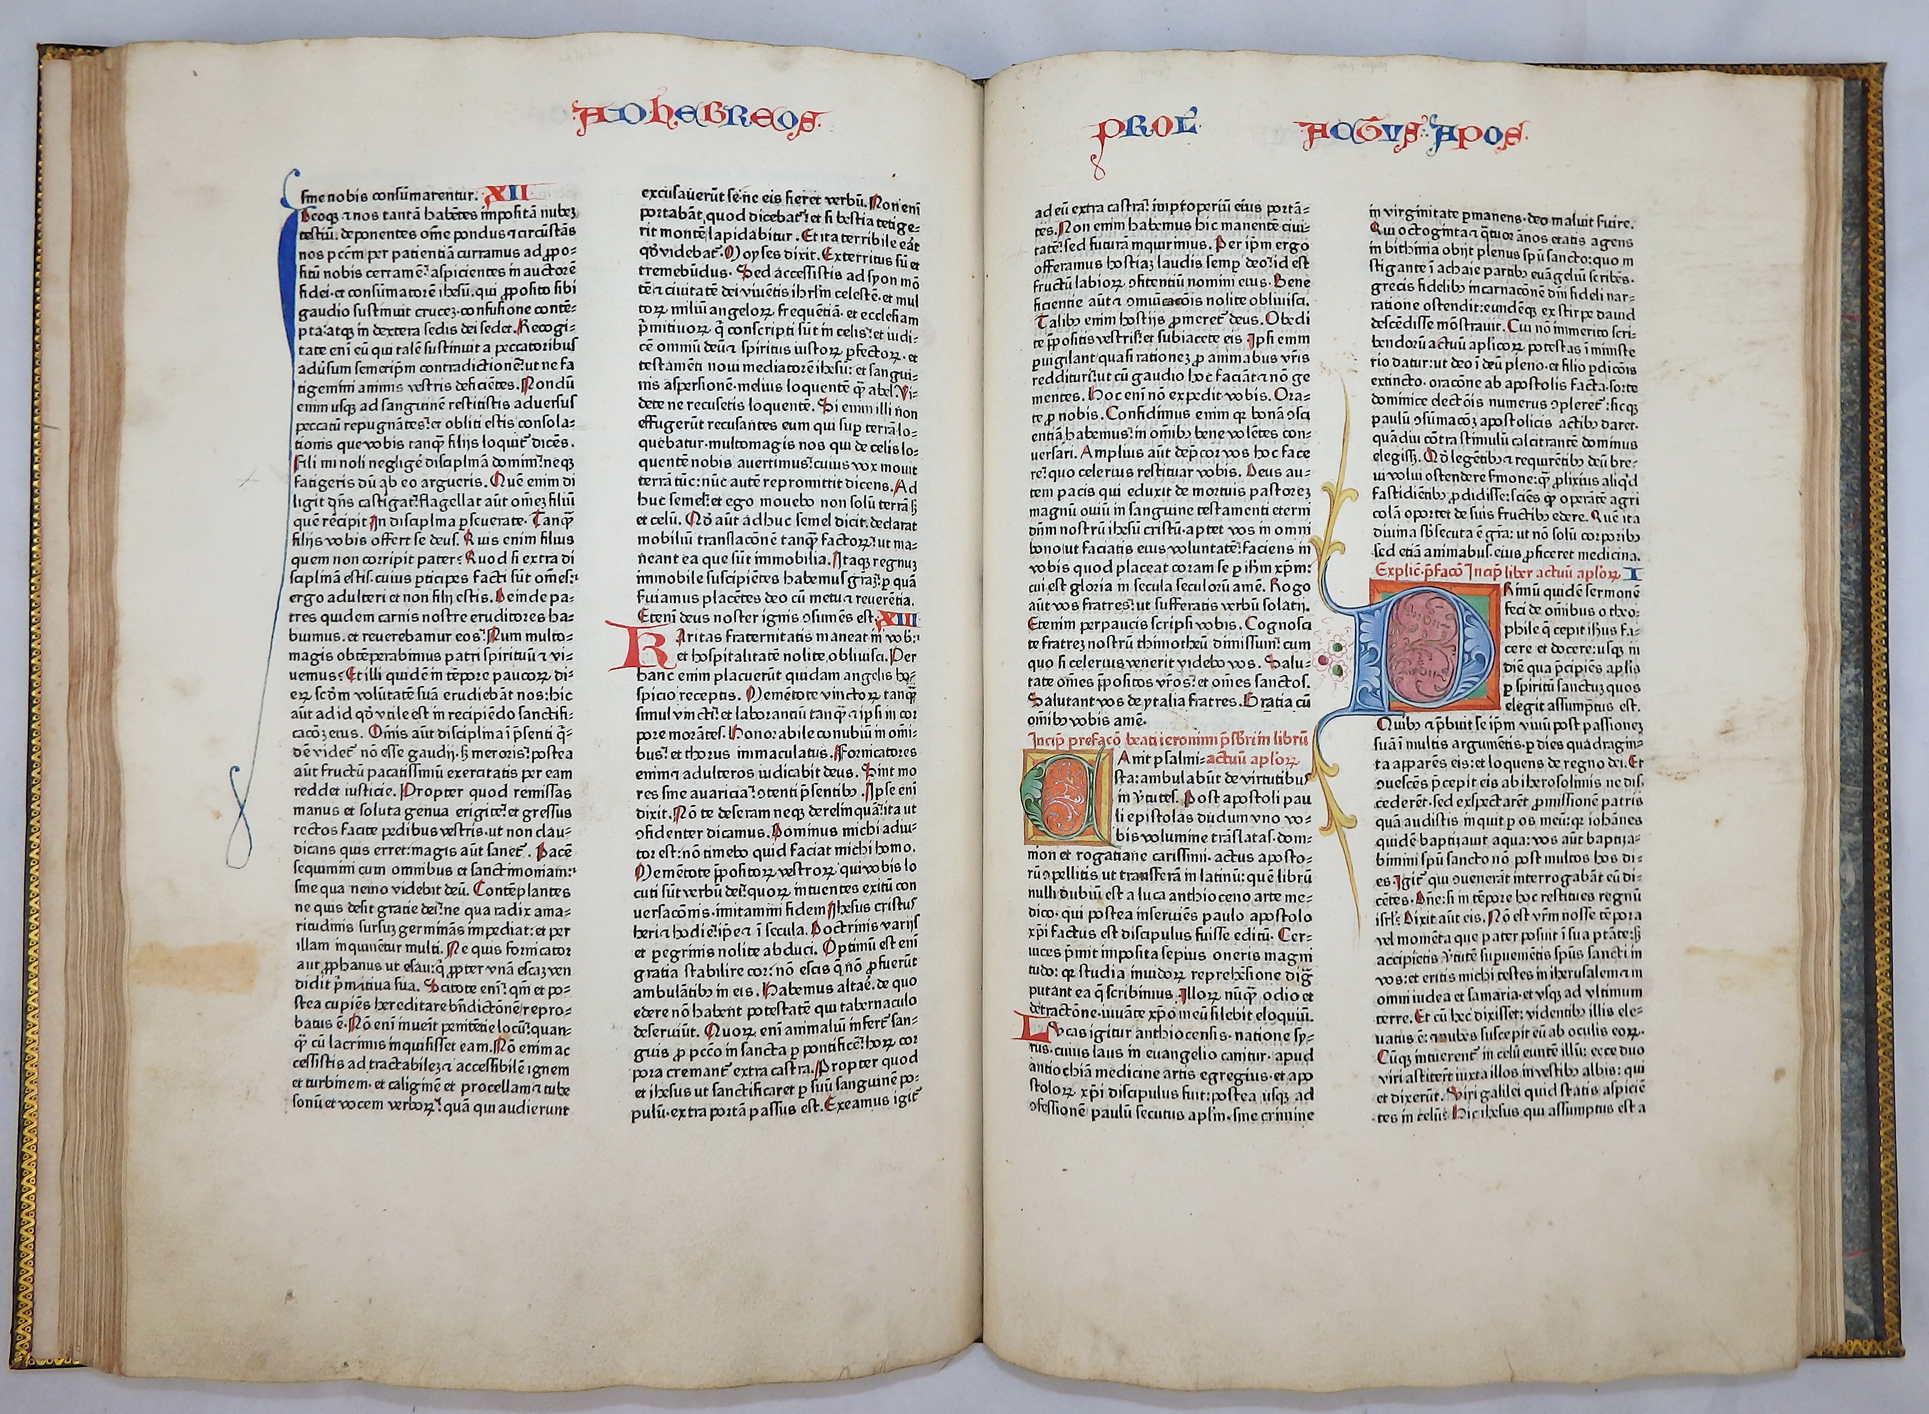 AD hEBREOS
sine nobis consūmarentur. XII
Ideoqꝫ ⁊ nos tantā habētes impositā nubeꝫ
testiū, deponentes om̄e pondus ⁊ circūstās
nos pccm̄ per patientiā curramus ad ꝓpo=
situ nobis certamē: aspicientes in auctorē
fidei et consūmatorē ihesū. qui ꝓposito sibi
gaudio sustinuit cruceꝫ confusione contē=
pta: atqꝫ in dextera sedis dei sedet. Recogi=
tate eni eū qui talē sustinuit a peccatoribus
adūsum semetip̄m contradictionē: ut ne fa
tigemini animis vestris deficiētes. Nondū
enim usqꝫ ad sanguinē restitistis adversus
peccatū repugnātes: et obliti estis consola=
tionis que vobis tanqꝫ filijs loquit̄ dicēs.
Fili mi noli negligē disciplinā domini: neqꝫ
fatigeris dū ab eo argueris. Quē enim di
ligit dn̄s castigat: flagellat aūt om̄eꝫ filiū
quē recipit. In disciplina ꝑseverate. Tanqꝫ
filijs vobis offert se deus. Quis enim filius
quem non corripit pater? Quod si extra di
sciplinā estis. cuius ꝑticipes facti sūt om̄es:
ergo adulteri et non filij estis. Deinde pa=
tres quidem carnis nostre eruditores ha=
buimus. et reverebamur eos: Num multo=
magis obtēperabimus patri spirituū ⁊ vi=
vemus? Et illi quidē in tēpore paucoꝝ di=
eꝝ scd̄m volūtatē suā erudiebāt nos: hic
aūt ad id qd̄ vtile est in recipiēdo sanctifi=
cacōeꝫ eius. Om̄is aūt disciplina ī p̄senti q̄=
dē videt̄ nō esse gaudij: sꝫ meroris: postea
aūt fructū pacatissimū exercitatis per eam
reddet iusticie. Propter quod remissas
manus et soluta genua erigite: et gressus
rectos facite pedibus vestris. ut non clau=
dicans quis erret: magis aūt sanet̄. Pacē
sequimini cum omnibus et sanctimoniam:
sine qua nemo videbit deū. Contēplantes
ne quis desit gratie dei: ne qua radix ama=
ritudinis sursuꝫ germinās impediat: et per
illam inquinētur multi. Ne quis fornicator
aut ꝓphanus ut esau: q̄ ꝓpter vnā escaꝫ ven
didit p̄mitiva sua. Scitote eni: qm̄ et po=
stea cupiēs hereditare bn̄dictōnē repro=
batus ē. Nō eni invenit penitētie locū: quan=
qꝫ cū lacrimis inquisisset eam. Nō enim ac
cessistis ad tractabileꝫ ⁊ accessibilē ignem
et turbinem. et caliginē et procellam ⁊ tube
sonū et vocem verboꝝ: quā qui audierunt
excusaverūt se: ne eis fieret verbū. Non eni
portabāt quod dicebat̄: et si bestia tetige=
rit montē lapidabitur. Et ita terribile erāt
qd̄ videbat̄. Moyses dixit. Exterritus sū et
tremebūdus. Sed accessistis ad syon mō
tē ⁊ civitatē dei viventis ihrl̄m celestē. et mul
toꝝ miliū angeloꝝ frequētiā. et ecclesiam
p̄mitivoꝝ q̄ conscripti sūt in celis: et iudi=
cē omniū deū ⁊ spiritus iustoꝝ ꝑfectoꝝ. et
testamēti novi mediatorē ihesū: et sangui=
nis aspersionē melius loquentē qꝫ abel. Vi=
dete ne recusetis loquentē. Si enim illi non
effugerūt recusantes eum qui suꝑ terrā lo=
quebatur. multomagis nos qui de celis lo=
quentē nobis avertimus: cuius vox movit
terrā tūc: nūc autē repromittit dicens. Ad
huc semel: et ego movebo non solū terrā sꝫ
et celū. Qd̄ aūt adhuc semel dicit. declarat
mobiliū translacōnē tanqꝫ factoꝝ: ut ma=
neant ea que sūt immobilia. Itaqꝫ regnuꝫ
immobile suscipiētes habemus grāꝫ: ꝑ quā
serviamus placētes deo cū metu ⁊ reverētia.
Eteni deus noster ignis ɔsumēs est. XIII
Karitas fraternitatis maneat in vob:
et hospitalitatē nolite oblivisci. Per
hanc enim placuerūt quidam angelis hos=
spicio receptis. Memētote vinctoꝝ tanqꝫ
simul vincti: et laborantiū tanqꝫ ⁊ ipsi in cor
pore morātes. Honorabile conubiū in omi=
bus: et thorus immaculatus. Fornicatores
enim ⁊ adulteros iudicabit deus. Sint mo
res sine avaricia: ɔtenti p̄sentibꝫ. Ipse eni
dixit. Nō te deseram neqꝫ derelinquā: ita ut
ɔfidenter dicamus. Dominus michi adiu=
tor est: nō timebo quid faciat michi homo.
Memētote p̄positoꝝ vestroꝝ qui vobis lo
cuti sūt verbū dei: quoꝝ intuentes exitū con
versacōnis. imitamini fidem. Ihesus cristus
heri ⁊ hodie: ip̄e ⁊ ī secula. Doctrinis varijs
et ꝑegrinis nolite abduci. Optimū est eni
gratia stabilire cor: nō escis q̄ nō ꝓfuerūt
ambulātibꝫ in eis. Habemus altaē. de quo
edere nō habent potestatē qui tabernaculo
deserviūt. Quoꝝ eni animaliū infert̄ san=
guis ꝓ pccō in sancta ꝑ pontificē: hoꝝ cor
pora cremant̄ extra castra. Propter quod
et ihesus ut sanctificaret ꝑ suū sanguinē po=
pulū. extra portā passus est. Exeamus igit̄
PROL ACTUS APOS.
ad eū extra castra: imꝓperiū eius portā=
tes. Non enim habemus hic manentē civi=
tatē: sed futurā inquirimus. Per ip̄m ergo
offeramus hostiaꝫ laudis semꝑ deo: id est
fructū labioꝝ ɔfitentiū nomini eius. Bene
ficientie aūt ⁊ omunicacōis nolite oblivisci.
Talibꝫ enim hostijs ꝓmeret̄ deus. Obedi
te p̄positis vestris: et subiacete eis. Ipsi enim
ꝑvigilant quasi rationeꝫ ꝓ animabus vr̄is
reddituri: ut cū gaudio hoc faciāt ⁊ nō ge
mentes. Hoc eni nō expedit vobis. Ora=
te ꝓ nobis. Confidimus enim qꝫ bonā ɔsci
entiā habemus: in omībꝫ bene volētes con=
versari. Amplius aūt dep̄cor vos hoc face
re: quo celerius restituar vobis. Deus au=
tem pacis qui eduxit de mortuis pastoreꝫ
magnū oviū in sanguine testamenti eterni
dn̄m nostrū ihesū cristū. aptet vos in omni
bono: ut faciatis eius volūtatē: faciens in
vobis quod placeat coram se ꝑ ihm̄ xp̄m:
cui est gloria in secula seculoꝝ amē. Rogo
aūt vos fratres: ut sufferatis verbū solatij.
Etenim perpaucis scripsi vobis. Cognosci
te fratreꝫ nostrū thimotheū dimissum: cum
quo si celerius venerit videbo vos. Salu=
tate om̄es p̄positos vr̄os: et om̄es sanctos.
Salutant vos de ytalia fratres. Gratia cū
omībꝫ vobis amē.
Incip̄ prefacō beati ieronimi p̄sbr̄i in librū
Canit psalmi= actuū apl̄oꝝ
sta: ambulabūt de virtutibus
in v̄tutes. Post apostoli pau
li epistolas dudum vno vo=
bis volumine trāslatas. dom=
nion et rogatiane carissimi. actus aposto=
rū ɔpellitis ut transferā in latinū: quē librū
nulli dubiū est a luca anthioceno arte me=
dico. qui postea inserviēs paulo apostolo
xp̄i factus est discipulus fuisse editū. Cer=
vices p̄mit imposita sepius oneris magni
tudo: qꝫ studia invidoꝝ reprehēsione diḡ
putant ea q̄ scribimus. Illoꝝ nūqꝫ odio et
detractōne. iuvāte xp̄o meū silebit eloquiū.
Lvcas igitur anthiocensis. natione sy=
rus. cuius laus in euangelio canitur. apud
antiochiā medicine artis egregius. et apo
stoloꝝ xp̄i discipulus fuit: postea usqꝫ ad
ɔfessionē paulū secutus apl̄m. sine crimine
in virginitate ꝑmanens. deo maluit s̄uire.
Qui octoginta ⁊ q̄tuor ānos etatis agens
in bithinia obijt plenus sp̄u sancto: quo in
stigante ī achaie partibꝫ evāgeliū scribēs.
grecis fidelibꝫ incarnacōnē dn̄i fideli nar=
ratione ostendit: eundēqꝫ ex stirpe david
descēdisse mōstravit. Cui nō immerito scri=
bendoꝝ actuū apl̄icoꝝ potestas ī ministe
rio datur: ut deo ī deū pleno. et filio ꝑdicōis
extincto. oracōne ab apostolis facta. sorte
dominice electōis numerus ɔpleret̄: sicqꝫ
paulū ɔsūmacōꝫ apostolicis actibꝫ daret.
quā diu cōtra stimulū calcitrantē dominus
elegiss̄. Qd̄ legētibꝫ ⁊ requirētibꝫ deū bre=
vi volui ostendere s̄mone: qꝫ ꝓlixius aliqͥd
fastidiētibꝫ ꝓdidisse: sciēs qꝫ operātē agri
colā oportet de suis fructibꝫ edere. Quē ita
divina sb̄secuta ē grā: ut nō solū corporibꝫ
sed etiā animabus eius ꝓficeret medicina.
Explic̄ p̄facō Incip̄ liber actuū apl̄oꝝ I
PRimū quidē sermonē
feci de omībus o theo=
phile q̄ cepit ih̄us fa=
cere et docere: usqꝫ in
diē qua p̄cipiēs apl̄is
ꝑ spiritū sanctuꝫ quos
elegit assumptus est.
Quibꝫ ⁊ p̄buit se ip̄m vivū post passioneꝫ
suā ī multis argumētis. ꝑ dies quadragin=
ta apparēs eis: et loquens de regno dei. Et
ɔvescēs p̄cepit eis ab iherosolimis ne dis=
cederēt. sed exspectarēt ꝓmissionē patris
quā audistis inquit ꝑ os meū: qꝫ iohānes
quidē baptizavit aqua: vos aūt baptiza=
bimini sp̄u sancto nō post multos hos di=
es. Igit̄ qui ɔvenerāt interrogabāt eū di=
cētes. Dn̄e: si in tēpore hoc restitues regnū
isrl̄? Dixit aūt eis. Nō est vr̄m nosse tēpora
vel momēta que pater posuit ī sua ptāte: sꝫ
accipietis v̄tutē suꝑvenietis sp̄us sancti in
vos: et eritis michi testes in iherusalem ⁊ in
omni iudea et samaria. et vsqꝫ ad vltimum
terre. Et cū hec dixisset: videntibꝫ illis ele=
vatus ē: ⁊ nubes suscepit eū ab oculis eoꝝ.
Cūqꝫ intuerent̄ in celū euntē illū: ecce duo
viri astiter̄t iuxta illos in vestibꝫ albis: qui
et dixerūt. Viri galilei quid statis aspiciē
tes in celū? Hic ihesus qui assumptus est a